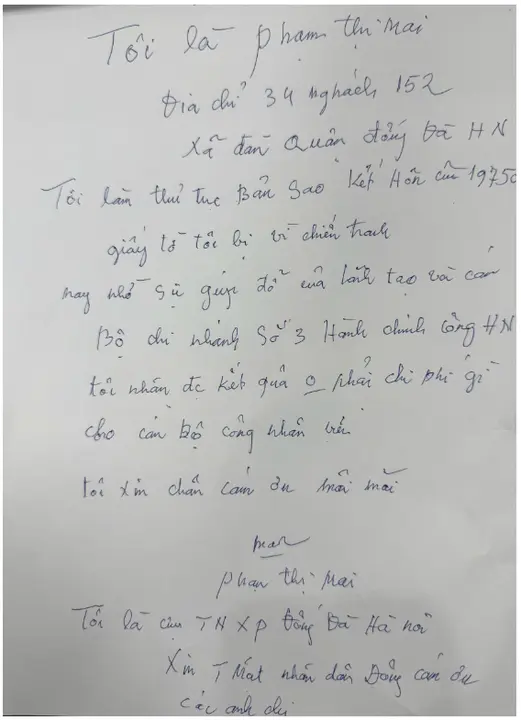 Tôi là phạm thị Mai
Địa chỉ 34 nghách 152
Xã đàn Quận đống Đa HN
Tôi làm thủ tục Bản Sao Kết Hôn cũ 1975
giấy tờ tôi bị vì chiến tranh
nay nhờ sự giúp đỡ của lãnh tạo và cán
Bộ chi nhánh Số 3 Hành chính công HN
tôi nhận đc kết quả o phải chi phí gì
cho cán bộ công nhân viên
tôi xin chân cám ơn mãi mãi
Mai
phạm thị Mai
Tôi là cựu TNXP Đống Đa Hà nội
Xin T Mặt nhân dân Đống cám ơn
các anh chị